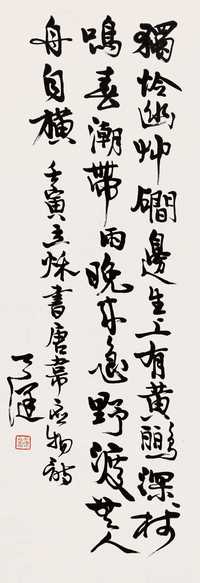 獨怜幽艸磵邊生上有黃鸝深樹
鳴春潮帶雨晚来急野渡無人
舟自橫 壬寅立秋書唐韋應物詩